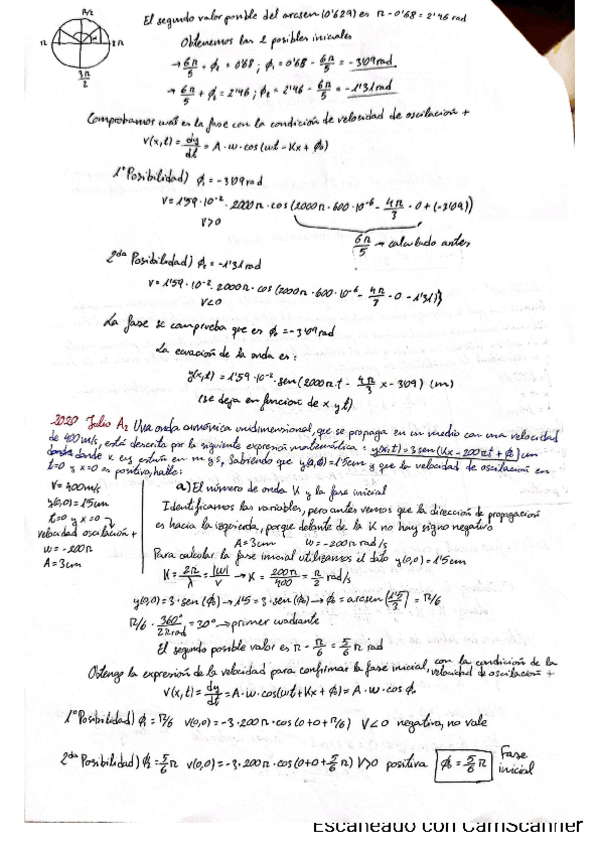 π/2
π
2π
3π/2
El segundo valor posible del arcsen (0'629) es π - 0'68 = 2'46 rad
Obtenemos las 2 posibles iniciales
→ 6π/5 + ϕ₁ = 0'68 ; ϕ₁ = 0'68 - 6π/5 = -3'09 rad
→ 6π/5 + ϕ₂ = 2'46 ; ϕ₂ = 2'46 - 6π/5 = -1'31 rad
Comprobamos cual es la fase con la condición de velocidad de oscilación +
v(x,t) = dy/dt = A · w · cos(wt - Kx + ϕ₀)
1ª Posibilidad) ϕ₁ = -3'09 rad
v = 1'59 · 10⁻² · 2000π · cos (2000π · 600 · 10⁻⁶ - 4π/3 · 0 + (-3'09))
v>0
6π/5 → calculado antes
2da Posibilidad) ϕ₂ = -1'31 rad
v = 1'59 · 10⁻² · 2000π · cos (2000π · 600 · 10⁻⁶ - 4π/3 · 0 - 1'31)
v<0
La fase se comprueba que es ϕ₀ = -3'09 rad
La ecuación de la onda es:
y(x,t) = 1'59 · 10⁻² · sen (2000π t - 4π/3 x - 3'09) (m)
(se deja en función de x y t)
2020 Julio A2 Una onda armónica unidimensional, que se propaga en un medio con una velocidad
de 400 m/s, está descrita por la siguiente expresión matemática: y(x,t) = 3 sen (Kx - 200πt + ϕ₀) cm
donde x e y están en m y s, Sabiendo que y(0,0) = 1'5 cm y que la velocidad de oscilación en
t=0 y x=0 es positiva, halle:
v = 400 m/s
y(0,0) = 1'5 cm
t=0 y x=0 →
velocidad oscilación +
w = -200π
A = 3 cm
a) El número de onda K y la fase inicial
Identificamos las variables, pero antes vemos que la dirección de propagación
es hacia la izquierda, porque delante de la K no hay signo negativo
A = 3 cm w = -200π rad/s
Para calcular la fase inicial utilizamos el dato y(0,0) = 1'5 cm
K = 2π/λ = |w|/v → K = 200π/400 = π/2 rad/s
y(0,0) = 3 · sen (ϕ₀) → 1'5 = 3 · sen (ϕ₀) → ϕ₀ = arcsen (1'5/3) = π/6
π/6 · 360°/2π rad = 30° → primer cuadrante
El segundo posible valor es π - π/6 = 5/6 π rad
Obtengo la expresión de la velocidad para confirmar la fase inicial, con la condición de la velocidad de oscilación +
v(x,t) = dy/dt = A · w · cos(wt + Kx + ϕ) = A · w · cos ϕ₀
1ª Posibilidad) ϕ₁ = π/6 v(0,0) = -3 · 200π · cos (0+0+π/6) V<0 negativa, no vale
2da Posibilidad) ϕ₂ = 5/6 π v(0,0) = -3 · 200π · cos (0+0+5/6 π) V>0 positiva ϕ₀ = 5/6 π Fase inicial
Escaneado con CamScanner